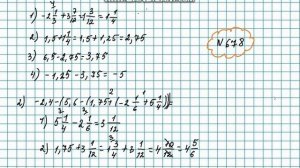 1) -2 1/3 + 3 7/12 = 1 3/12 = 1 1/4
2) 1,5 + 1 1/4 = 1,5 + 1,25 = 2,75
3) 6,5 - 2,75 = 3,75
4) -1,25 - 3,75 = -5
№ 678
2) -2,4 - (5,6 - (1,75 + (-2 1/6 + 5 1/4)))
1) 5 1/4 - 2 1/6 = 3 1/12
2) 1,75 + 3 1/12 = 1 3/4 + 3 1/12 = 4 10/12 = 4 5/6